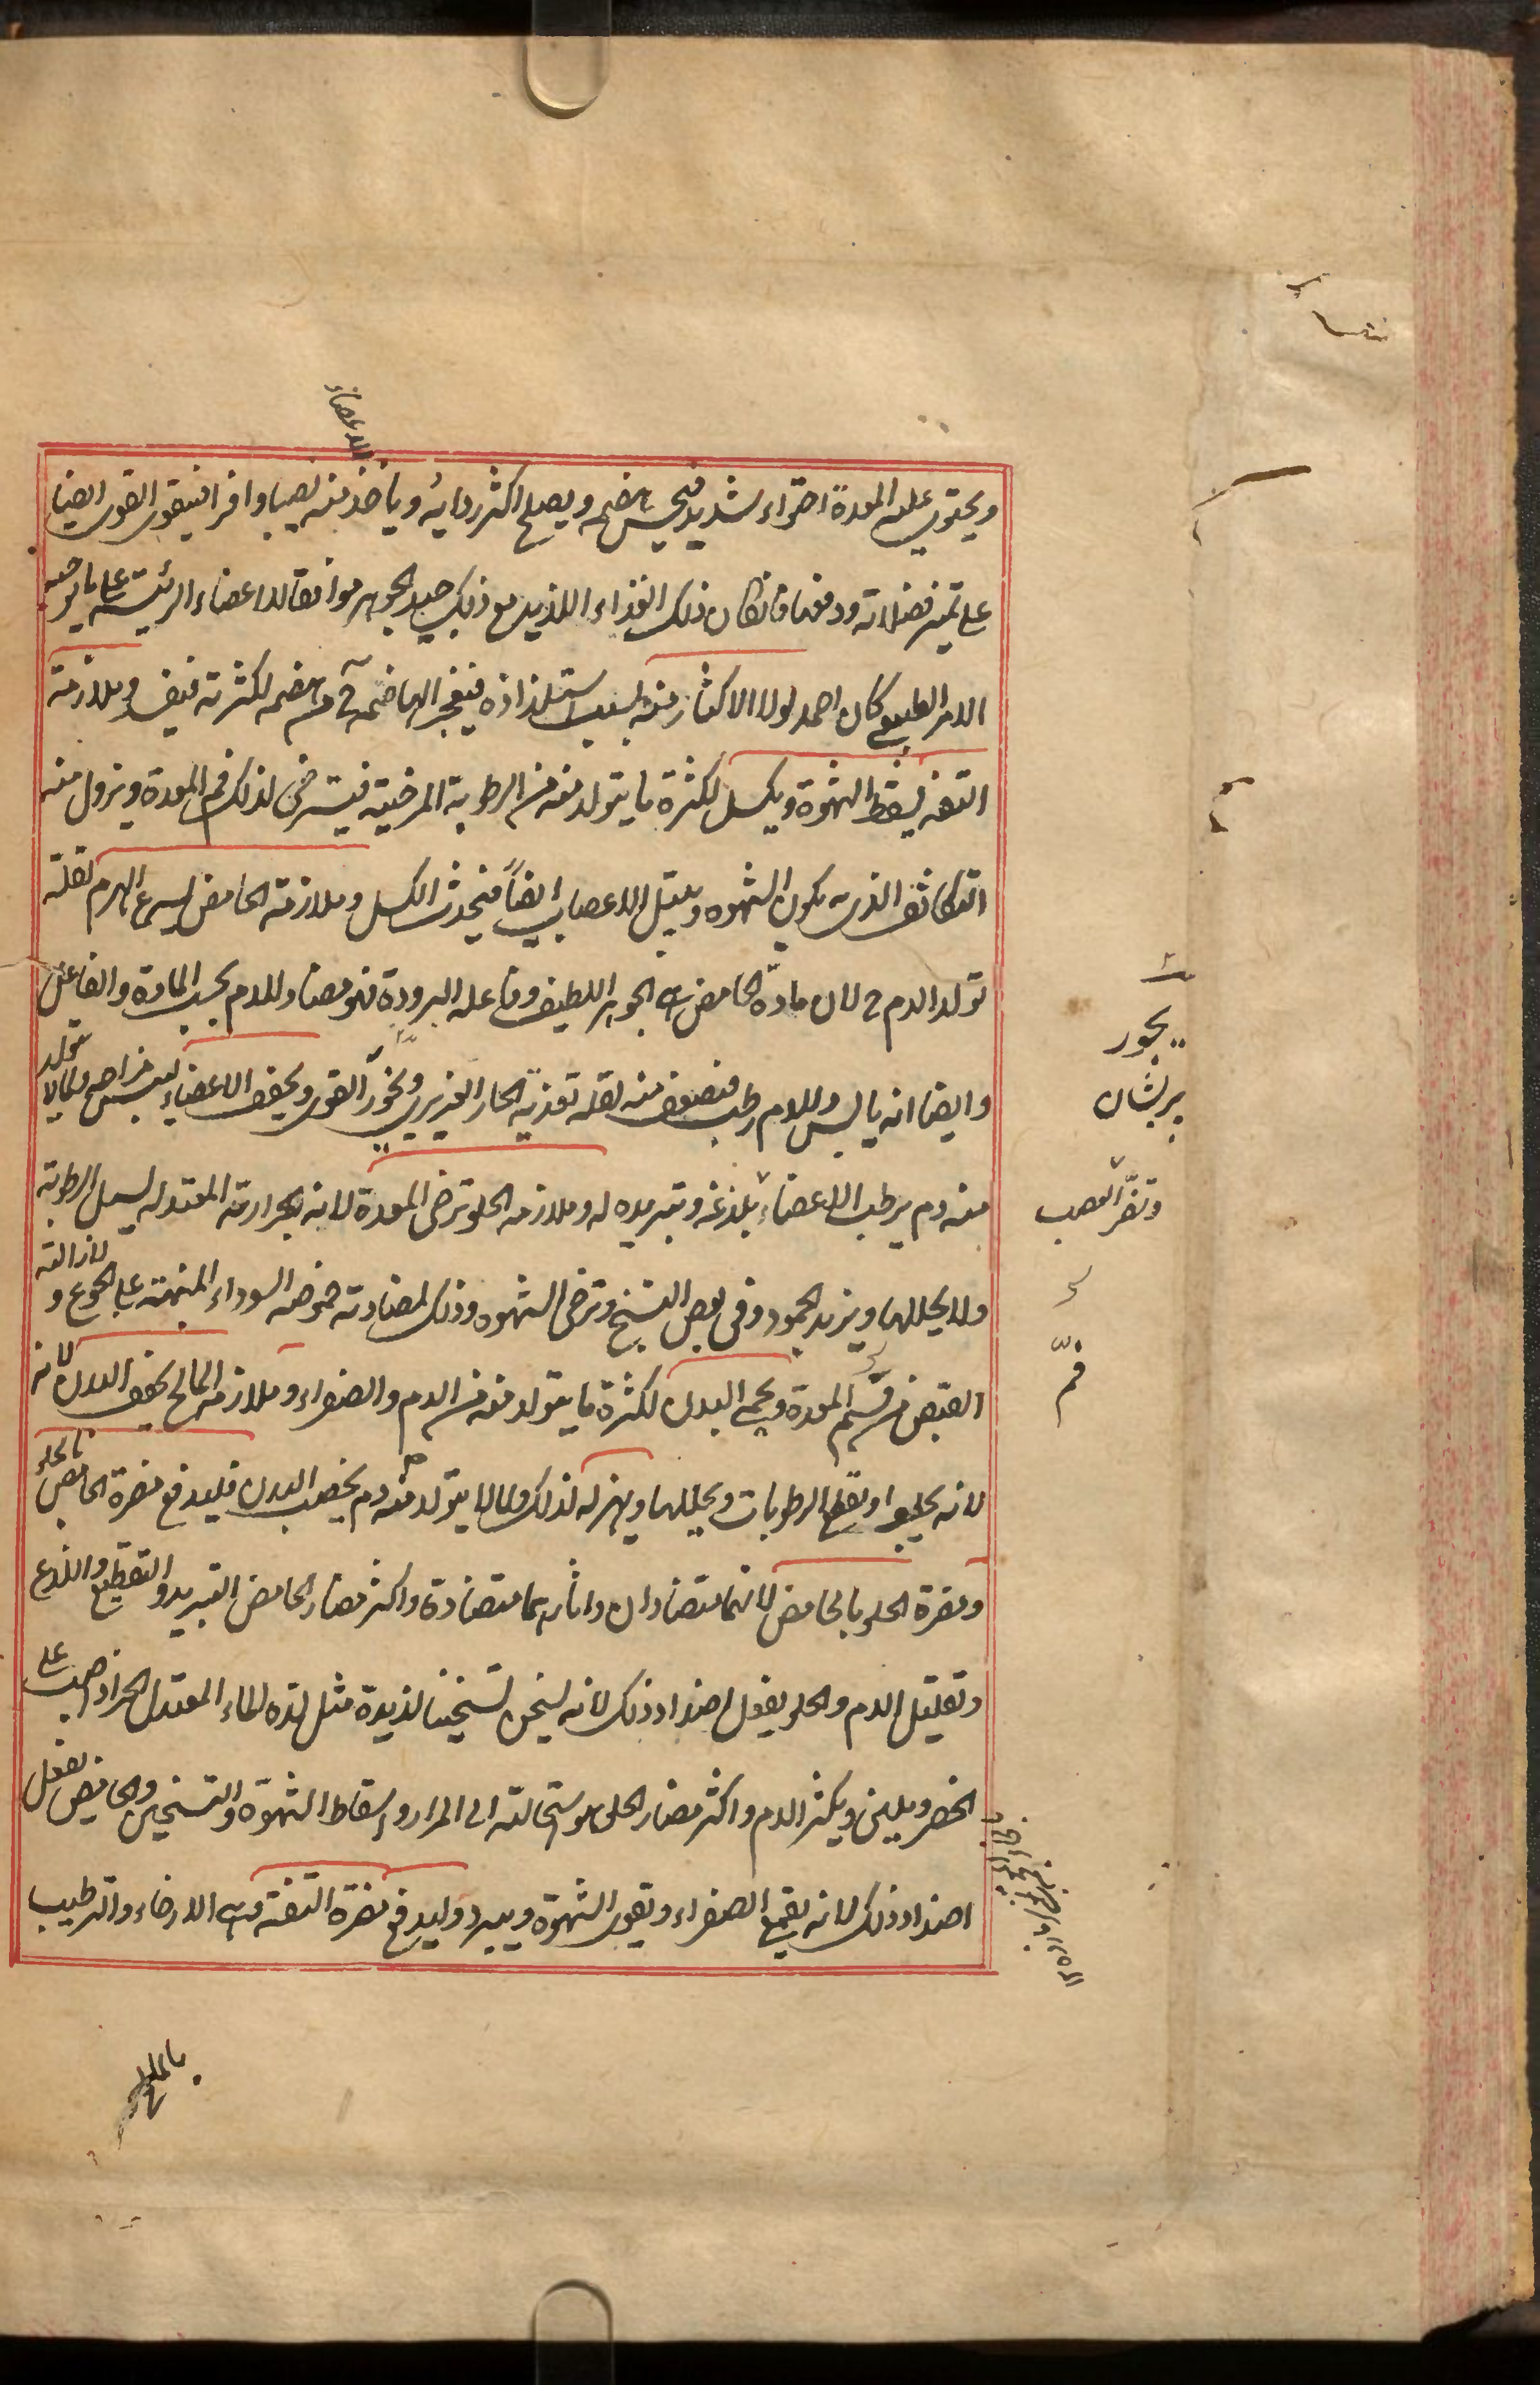 الاعضاء
ويحتوي عليه المعدة احتواء شديد فيحسن هضمه ويصلح اكثر رداءته وياخذ منه نصيبا وافرا فيتقوى القوى ايضا
على تميز فضلاته ودفعها فان كان ذلك الغذاء اللذيذ مع ذلك جيد الجوهر موافقا للاعضاء الرئيسة على ما يوجبه
الامر الطبيعي كان احمد لولا الاكثار منه بسبب استلذاذه فيعجز الهاضمة ح عن هضمه لكثرته فيفسد وملازمة
التفه يسقط الشهوة ويكسل لكثرة ما يتولد منه من الرطوبة المرخية فيسترخى لذلك فم المعدة ويزول منه
التكاثف الذى به يكون الشهوه ويبتل الاعصاب ايضاً فيحدث الكسل وملازمة الحامض يسرع الهرم لقلة
تولد الدم ح لان مادة الحامض هى الجوهر اللطيف وفاعله البرودة فهو مضاد للدم بحسب المادة والفاعل
وايضا انه يابس والدم رطب فيضعف منه لقلة تغذية الحار الغريزى ويخور القوى ويجفف الاعضاء ليبس مزاجه ولما لا يتولد
منه دم يرطب الاعضاء بلذعه وتبريده له وملازمه الحلو ترخى المعدة لانه بحرارته المعتدله يسيل الرطوبة
ولا يحللها ويزيد الجمود وفى بعض النسخ وترخى الشهوه وذلك لمضادته حموضه السوداء المنبهة على الجوع و لازالته
القبض من فم المعدة ويحمى البدن لكثرة ما يتولد منه من الدم والصفراء وملازمه المالح يجفف البدن لانه
لانه يجلو او يقطع الرطوبات ويحللها ويهزله لذلك ولما لا يتولد منه دم يخصب البدن فليدفع مضرة الحامض بالحلو
ومضرة الحلو بالحامض لانهما متضادان واثارهما متضادة واكثر مضار الحامض التبريد والتقطيع واللذع
وتقليل الدم والحلو يفعل اضداد ذلك لانه يسخن تسخينا لذيذة مثل لذه الماء المعتدل الحر اذا صب على
الخصر ويلين ويكثر الدم واكثر مضار الحلو هو استحالته الى المرار واسقاط الشهوة والتسخين والحامض يفعل
اضداد ذلك لانه يقمع الصفراء ويقوى الشهوة ويبرد وليدفع مضرة التفه وهى الارخاء والترطيب
يخور
پريشان
وتضر العصب
فم
بالمالح